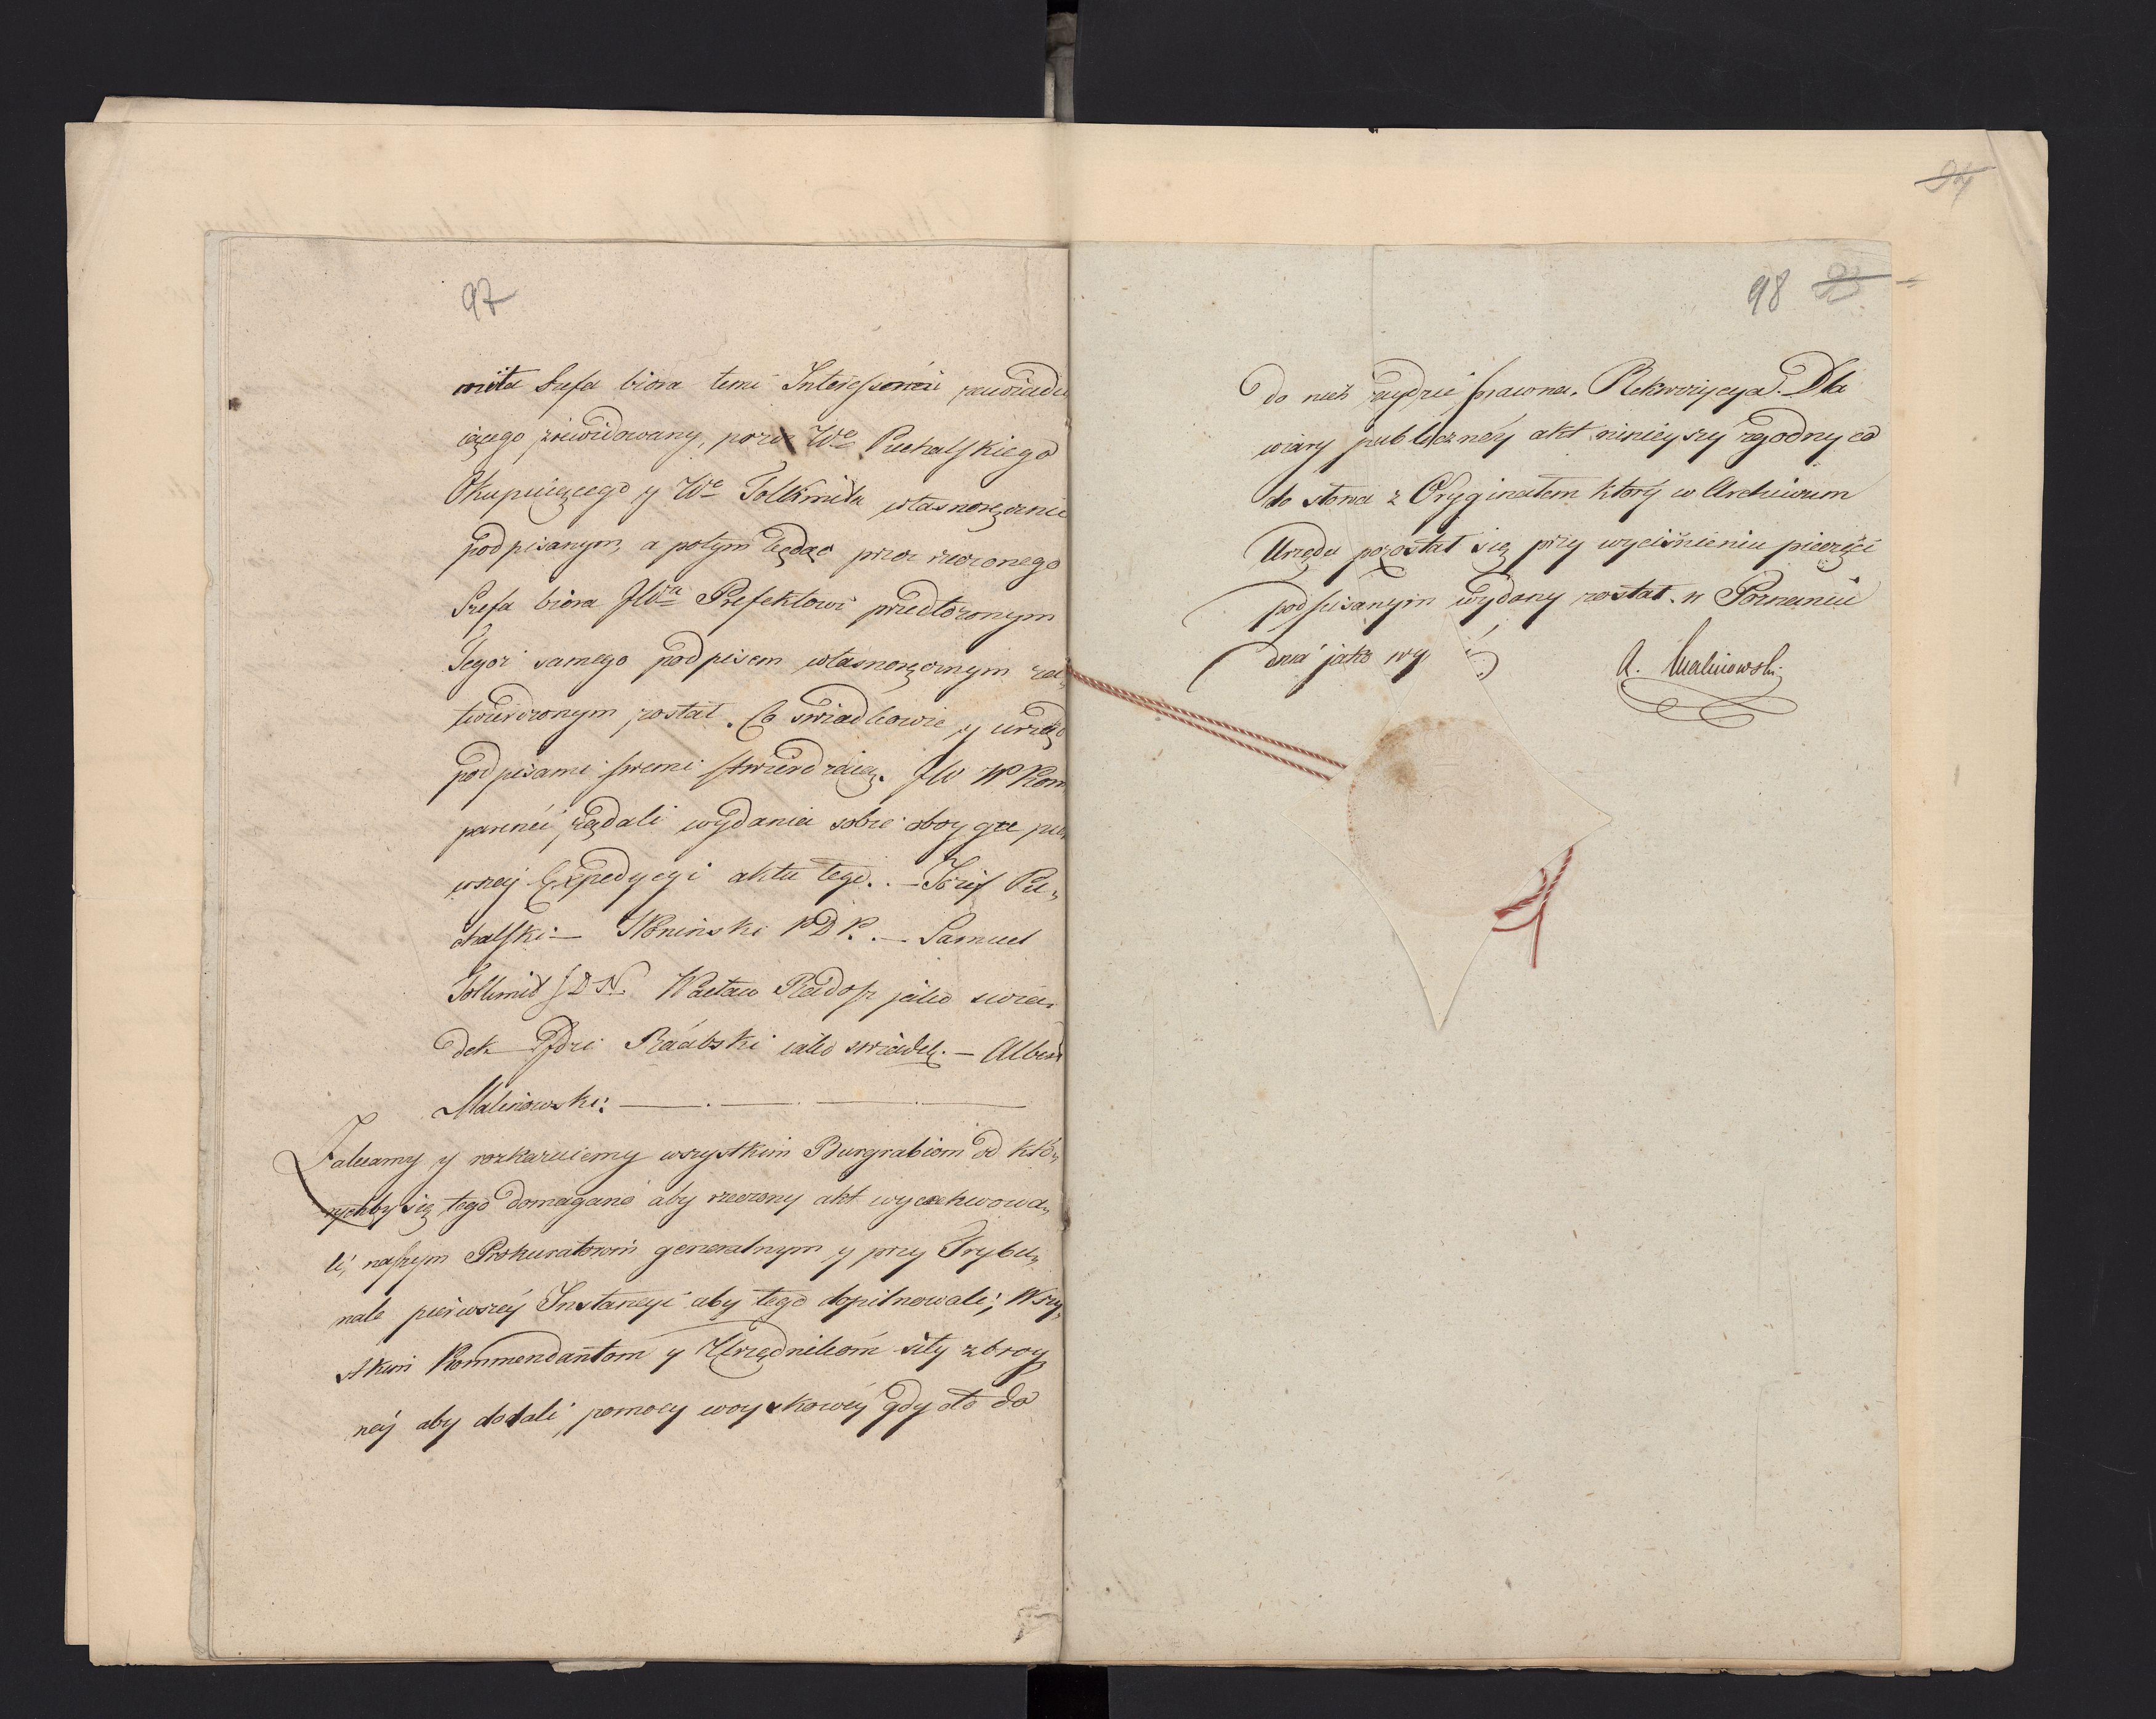 97
mita Szefa biora temi Interessami zawiadu
iącego zrewidowany, przez Wo Puchalskiego
Okupuiącego y Wo Tollkmita własnoręcznie
podpisanym, a potym będąc przez rzeczonego
Szefa biora JWu Prefektowi przedłozonym
Tegoz samego podpisem własnoręcznym zat
twierdzonym został. Co swiadkowie y urząd
podpisami swemi stwierdzaią. JW W Kom
parenci, żądali wydania sobie oboyga pier
wszey Expedycyi aktu tego. - Józef Pu„
chalski - Poninski P D P. - Samuel
Tollkmit S D N. Wacław Radosz jako swia„
dek Raabski iako swiadek. - Albert
Malinowski:
Zalecamy y rozkazuiemy wszystkim Burgrabiom od któ„
rychby się tego domagano aby rzeczony akt wyexekwowa„
li, naszym Prokuratorom generalnym y przy Trybu„
nale pierwszey Instancyi aby tego dopilnowali; Wszy„
stkim Kommendantom y Urzędnikom siły zbroy
ney aby dodali pomocy woyskowey gdy oto do
94
98
do nich zaydzie prawna. Rekwizycya. Dla
wiary publiczney akt ninieyszy zgodny co
do słowa z Oryginałem który w Archiwum
Urzędu pozostał się przy wyciśnieniu pieczęci
podpisanym wydany został. w Poznaniu
dnia jako wy
A. Malinowski